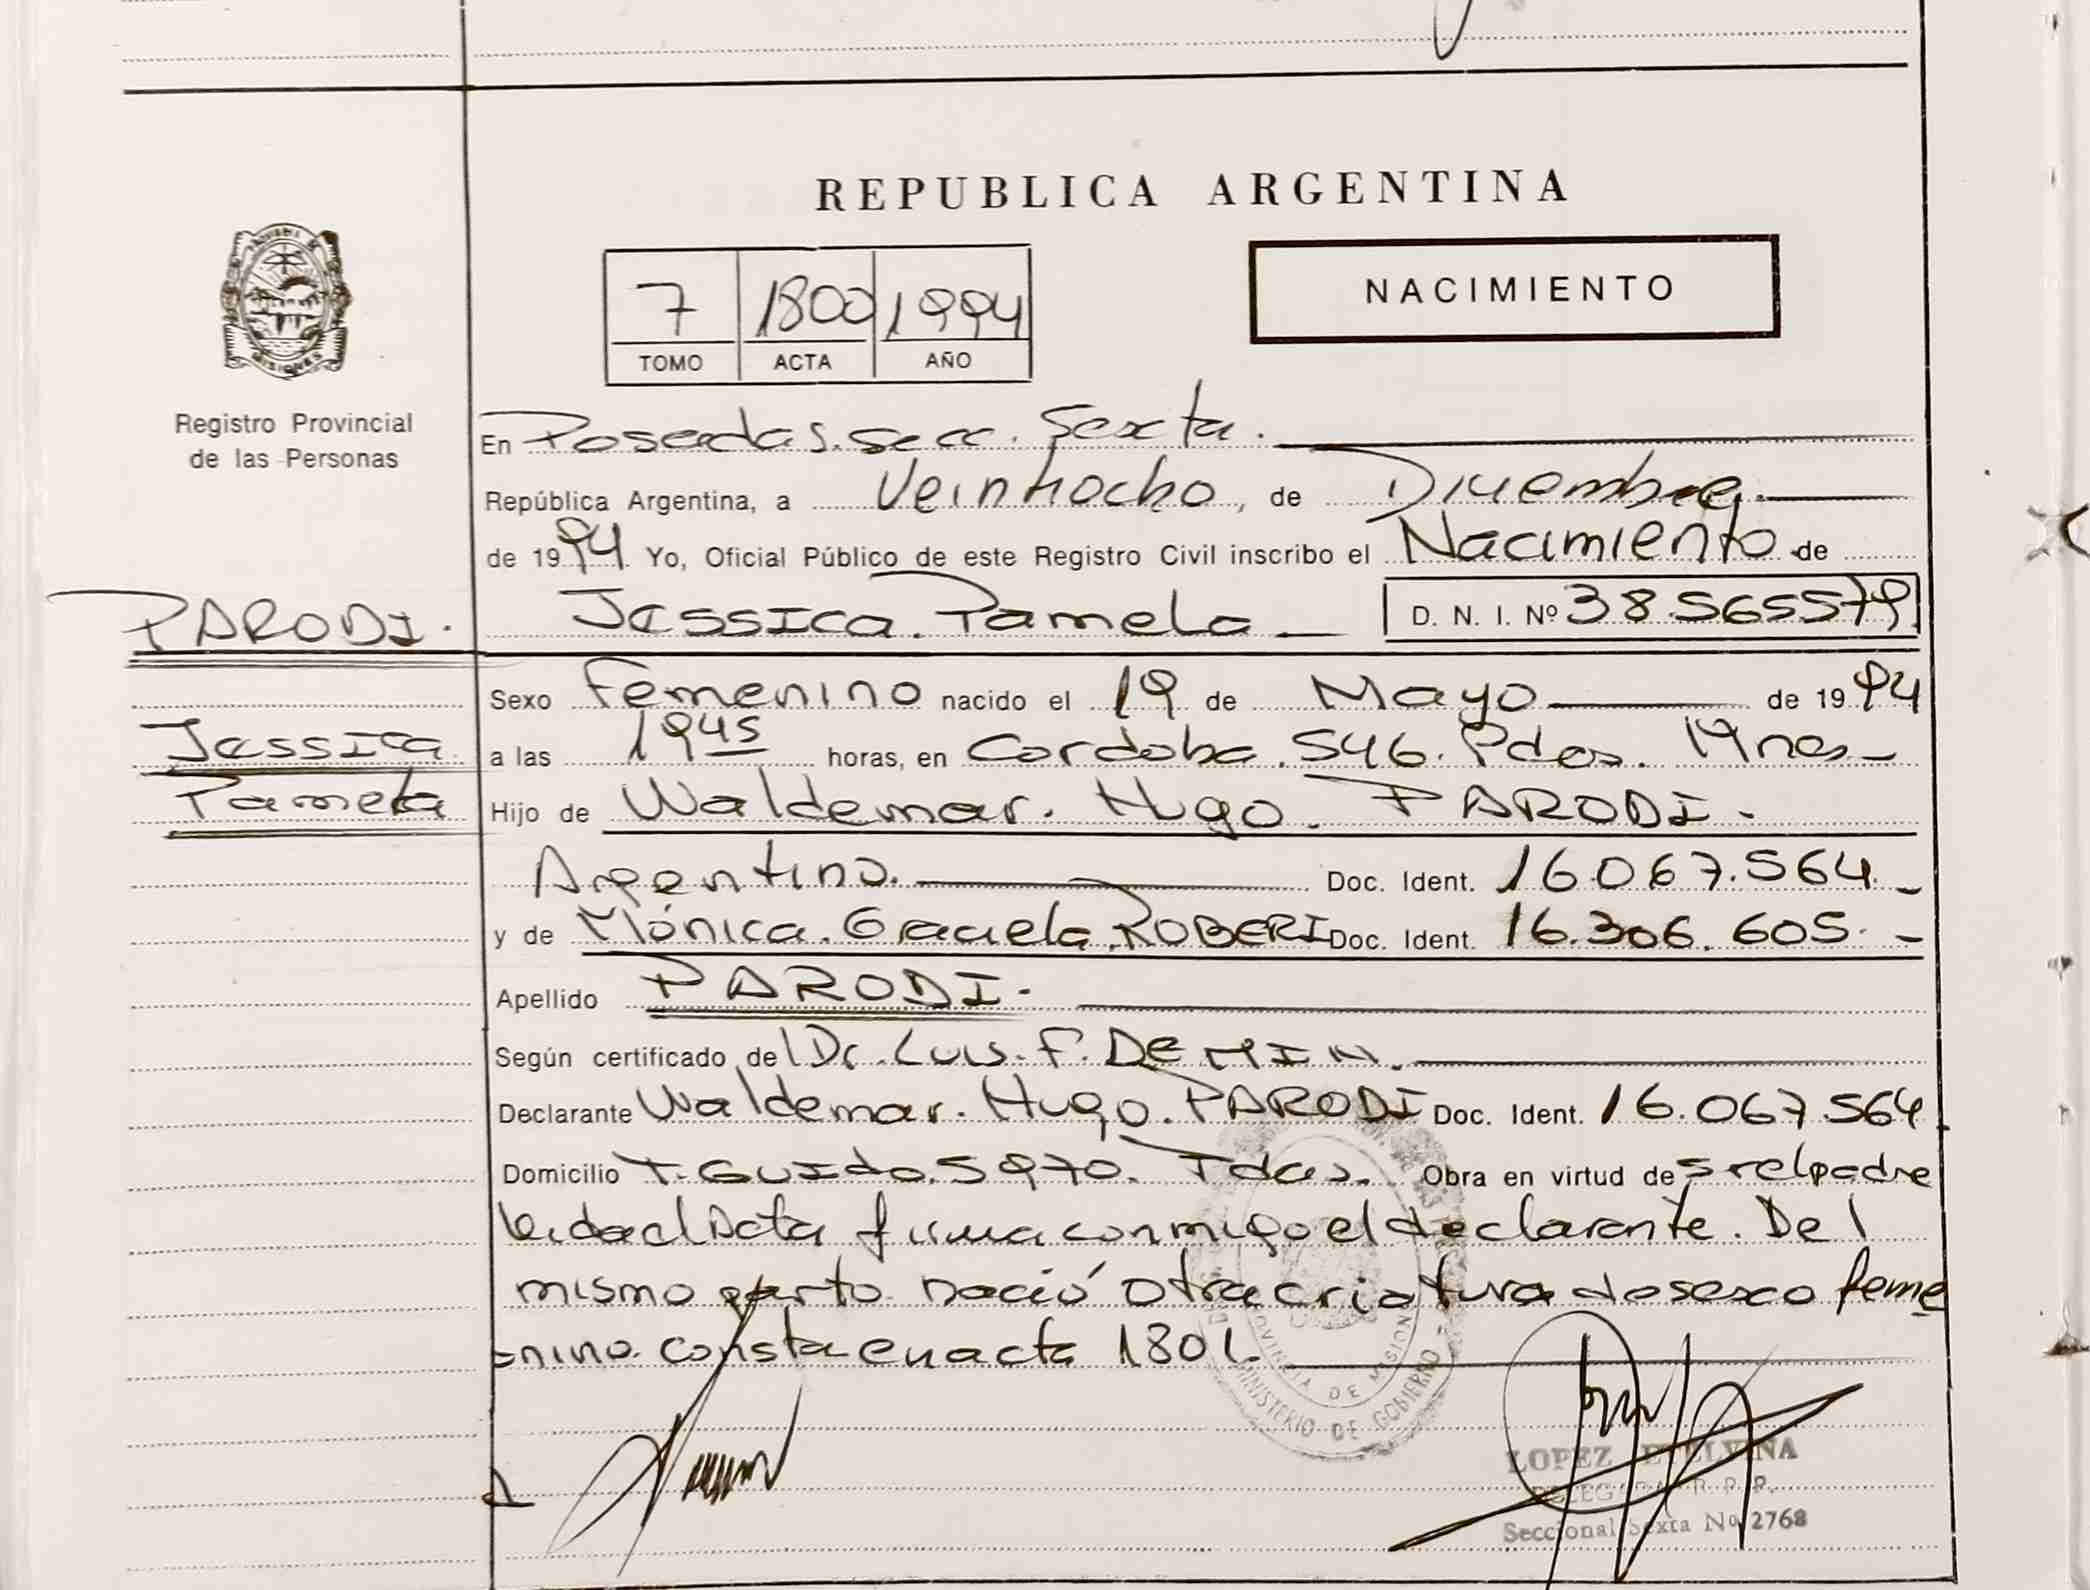 REPUBLICA ARGENTINA
NACIMIENTO
7 1800 1994
TOMO ACTA AÑO
MISIONES
Registro Provincial
de las Personas
En Posadas. Secc. Sexta.
República Argentina, a Veintiocho, de Diciembre
de 1994 Yo, Oficial Público de este Registro Civil inscribo el Nacimiento de
PARODI. Jessica. Pamela D. N. I. Nº 38.565579
Sexo Femenino nacido el 19 de Mayo de 1994
Jessica a las 1945 horas, en Cordoba. 546. Pdas. Mnes
Pamela Hijo de Waldemar. Hugo. PARODI.
Argentino. Doc. Ident. 16.067.564.
y de Mónica. Graciela. ROBERI Doc. Ident. 16.306.605.
Apellido PARODI.
Según certificado de Dr. Luis. F. DEMIN.
Declarante Waldemar. Hugo. PARODI Doc. Ident. 16.067.564
Domicilio T. Guido. 5970. Pdas. Obra en virtud de s relpadre
leida el Acta firma conmigo el declarante. Del
mismo parto nació otra criatura de sexo feme
=nino. consta en acta 1801.
PROVINCIA DE MISIONES
MINISTERIO DE GOBIERNO
LOPEZ ETELVINA
DELEGADA R. P. P.
Seccional Sexta Nº 2768